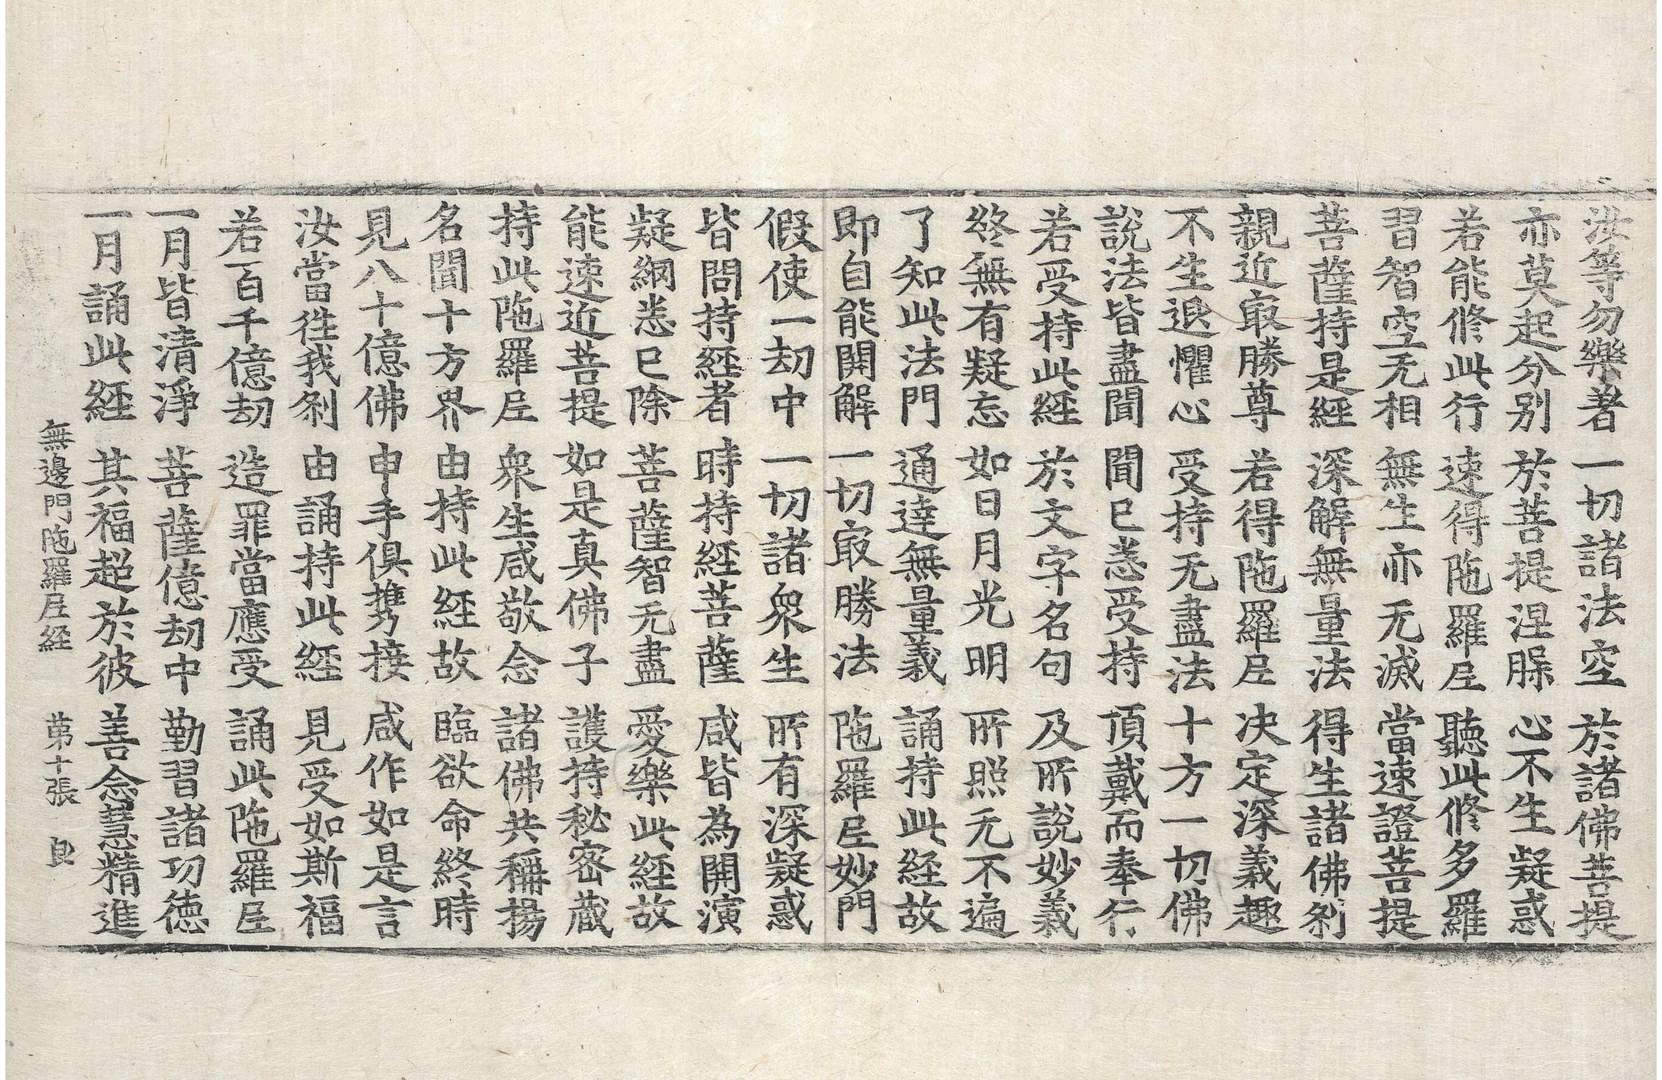 汝等勿樂著 一切諸法空 於諸佛菩提
亦莫起分別 於菩提涅脲 心不生疑惑
若能修此行 速得陁羅𡰱 聽此修多羅
習智空无相 無生亦无滅 當速證菩提
菩薩持是經 深解無量法 得生諸佛刹
親近㝡勝尊 若得陁羅𡰱 决定深義趣
不生退懼心 受持无盡法 十方一切佛
說法皆盡聞 聞已悉受持 頂戴而奉行
若受持此經 於文字名句 及所說妙義
終無有疑忘 如日月光明 所照无不遍
了知此法門 通達無量義 誦持此経故
即自能開解 一切㝡勝法 陁羅𡰱妙門
假使一劫中 一切諸衆生 所有深疑惑
皆問持経者 時持経菩薩 咸皆為開演
疑網悉已除 菩薩智无盡 愛樂此経故
能速近菩提 如是真佛子 護持秘密蔵
持此陁羅𡰱 衆生咸敬念 諸佛共稱揚
名聞十方界 由持此経故 臨欲命終時
見八十億佛 申手俱携接 咸作如是言
汝當徃我刹 由誦持此経 見受如斯福
若百千億劫 造罪當應受 誦此陁羅𡰱
一月皆清淨 菩薩億劫中 勤習諸功徳
一月誦此経 其福超於彼 善念慧精進
無邊門陁羅𡰱経 苐十張